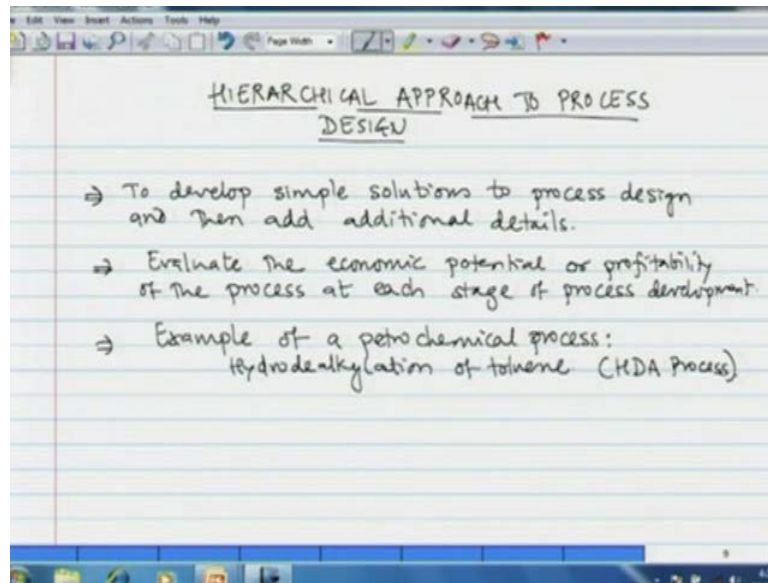 Edit View Insert Actions Tools Help
Page Width
HIERARCHICAL APPROACH TO PROCESS
DESIGN
⇒ To develop simple solutions to process design
and then add additional details.
⇒ Evaluate the economic potential or profitability
of the process at each stage of process development.
⇒ Example of a petrochemical process:
Hydrodealkylation of toluene (HDA Process)
9